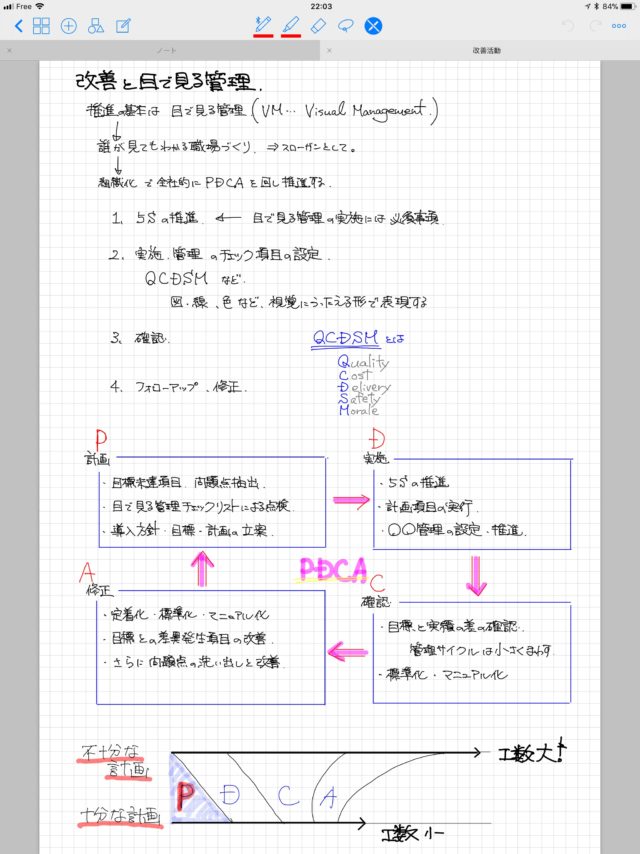 Free
22:03
84%
ノート
改善活動
改善と目で見る管理.
推進の基本は 目で見る管理 (VM… Visual Management.)
誰が見てもわかる職場づくり. ⇒スローガンとして。
組織化で全社的にPDCAを回し推進する.
1. 5Sの推進. ← 目で見る管理の実施には必須事項
2. 実施.管理のチェック項目の設定.
QCDSM など.
図・線、色など、視覚にうったえる形で表現する
3. 確認.
QCDSM とは
Quality
Cost
Delivery
Safety
Morale
4. フォローアップ、修正.
P
計画
・目標未達項目. 問題点抽出.
・目で見る管理チェックリストによる点検
・導入方針・目標・計画の立案
D
実施
・5Sの推進
・計画項目の実行.
・〇〇管理の設定・推進.
PDCA
A
修正
・定着化・標準化・マニュアル化
・目標との差異発生項目の改善.
・さらに問題点の洗い出しと改善.
C
確認
・目標と実績の差の確認.
管理サイクルは小さくまわす
・標準化・マニュアル化
不十分な
計画
工数大!
P D C A
十分な計画
工数小